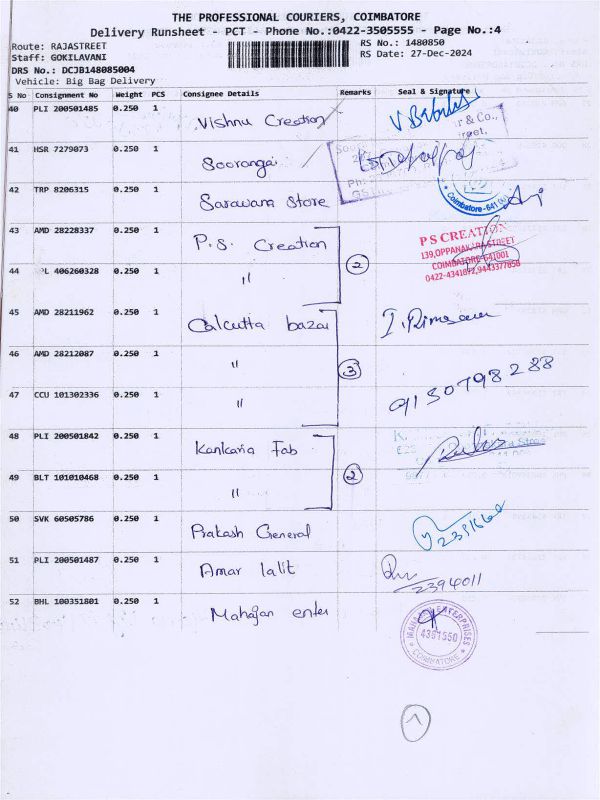 THE PROFESSIONAL COURIERS, COIMBATORE
Delivery Runsheet - PCT - Phone No.:0422-3505555 - Page No.:4
Route: RAJASTREET
RS No.: 1480850
Staff: GOKILAVANI
RS Date: 27-Dec-2024
DRS No.: DCJB148085004
Vehicle: Big Bag Delivery
S No Consignment No Weight PCS Consignee Details Remarks Seal & Signature
40 PLI 200501485 0.250 1 Vishnu Creation
r & Co.,
treet,
41 HSR 7279073 0.250 1 Sooranga
42 TRP 8206315 0.250 1 Sarawana Store
Coimbatore-641
43 AMD 28228337 0.250 1 P.S. Creation
P S CREATION
139,OPPANAKARA STREET
COIMBATORE-641001
2
44 406260328 0.250 1 "
45 AMD 28211962 0.250 1 Calcutta bazar
46 AMD 28212087 0.250 1 "
3
47 CCU 101302336 0.250 1 " 9150798288
48 PLI 200501842 0.250 1 Kankaria Fab
2
49 BLT 101010468 0.250 1 "
50 SVK 60505786 0.250 1 Prakash General
51 PLI 200501487 0.250 1 Amar lalit 2394011
52 BHL 100351801 0.250 1 Mahajan enter
MAHAJAN ENTERPRISES
4391550
COIMBATORE
1